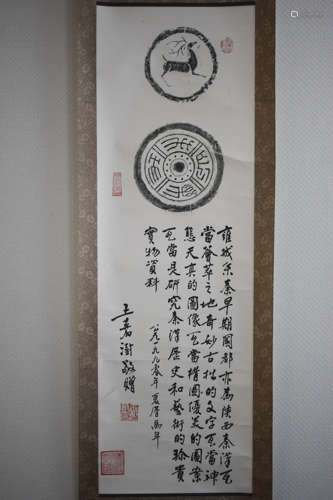 雍城秦早期國都亦為陝西秦漢瓦
當薈萃之地奇妙古拙的文字瓦當神
態天真的圖像瓦當構圖優美的圖案
瓦當是研究秦漢歷史和藝術的珍貴
實物資料
一九九零年夏歷馬年
王嘉澍敬贈